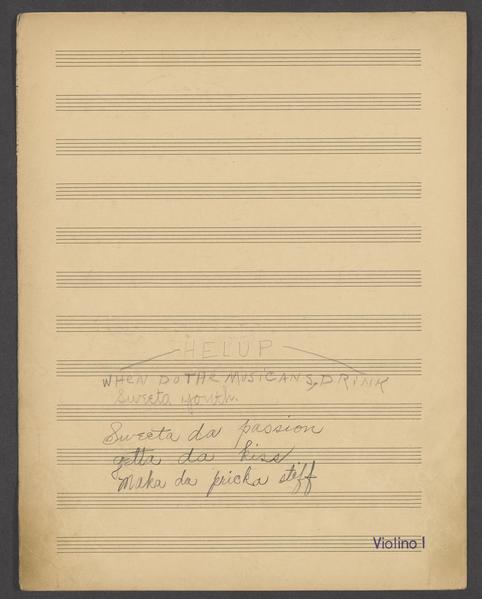 HELUP
WHEN DO THE MUSICANS, DRINK
Sweeta youth.
Sweeta da passion
getta da kiss
Maka da pricka stiff
Violino I